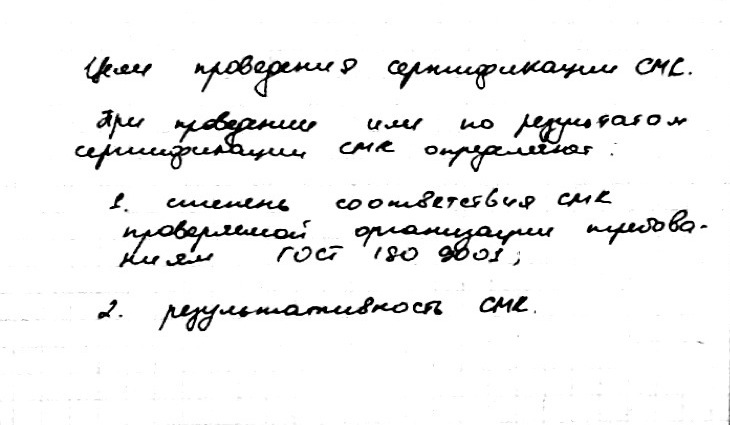 Цели проведения сертификации СМК.
При проведении или по результатам
сертификации СМК определяют:
1. степень соответствия СМК
проверяемой организации требова-
ниям ГОСТ ISO 9001;
2. результативность СМК.